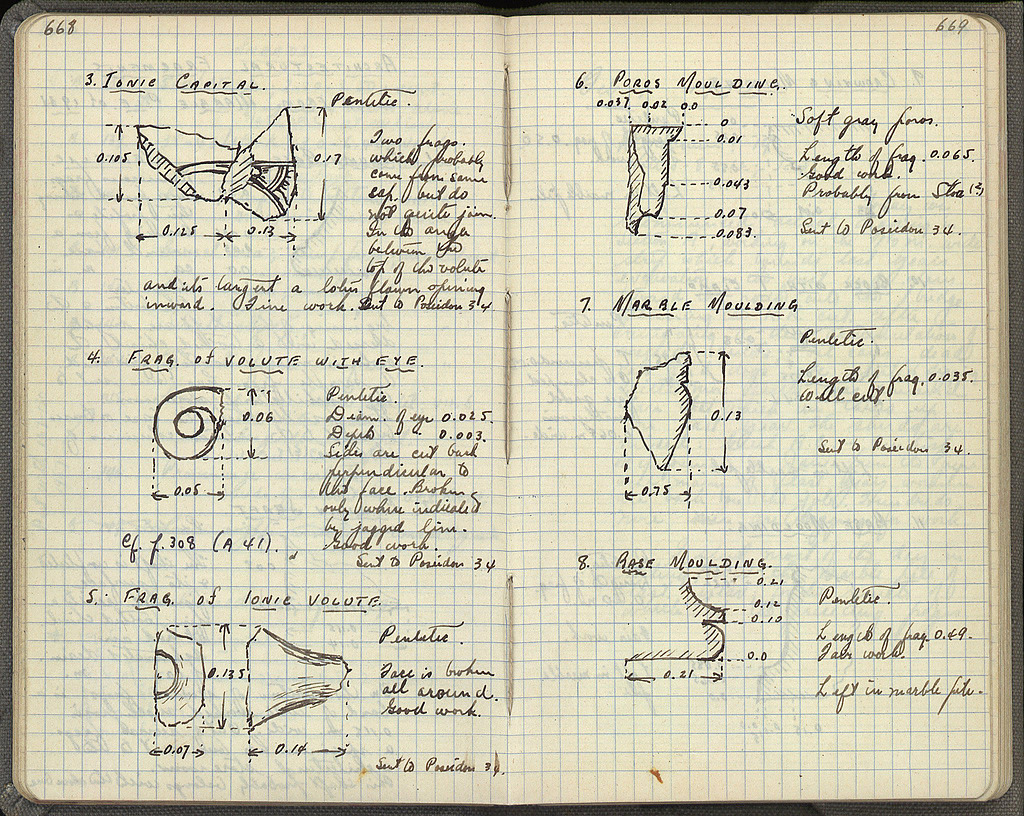 668
3. IONIC CAPITAL.
Pentelic.
0.105
0.17
0.125
0.13
Two frags.
which probably
come from same
cap. but do
not quite join.
In the angle
between the
top of the volute
and its tangent a lotus flower opening
inward. Fine work. Sent to Poseidon 34
4. FRAG. of VOLUTE WITH EYE.
0.06
0.05
Pentelic.
Diam. of eye 0.025.
Depth " 0.003.
Sides are cut back
perpendicular to
the face. Broken
only where indicated
by jagged line.
Good work.
Cf. p. 308 (A 41).
Sent to Poseidon 34
5. FRAG. of IONIC VOLUTE.
0.135
0.07
0.14
Pentelic.
Face is broken
all around.
Good work.
Sent to Poseidon 34.
669
6. POROS MOULDING.
0.037 0.02 0.0
0
0.01
0.043
0.07
0.083.
Soft gray poros.
Length of frag. 0.065.
Good work.
Probably from Stoa (?)
Sent to Poseidon 34.
7. MARBLE MOULDING
0.13
0.75
Pentelic.
Length of frag. 0.035.
Well cut.
Sent to Poseidon 34.
8. BASE MOULDING.
0.21
0.12
0.10
0.0
0.21
Pentelic.
Length of frag. 0.49.
Fair work.
Left in marble pile.